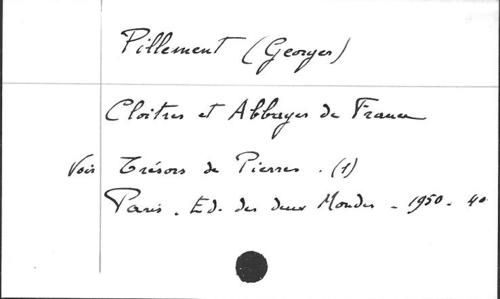 Pillement (Georges)
Cloitres et Abbayes de France
Voir Trésors de Pierres . (1)
Paris . Ed. des deux Mondes - 1950 - 4o